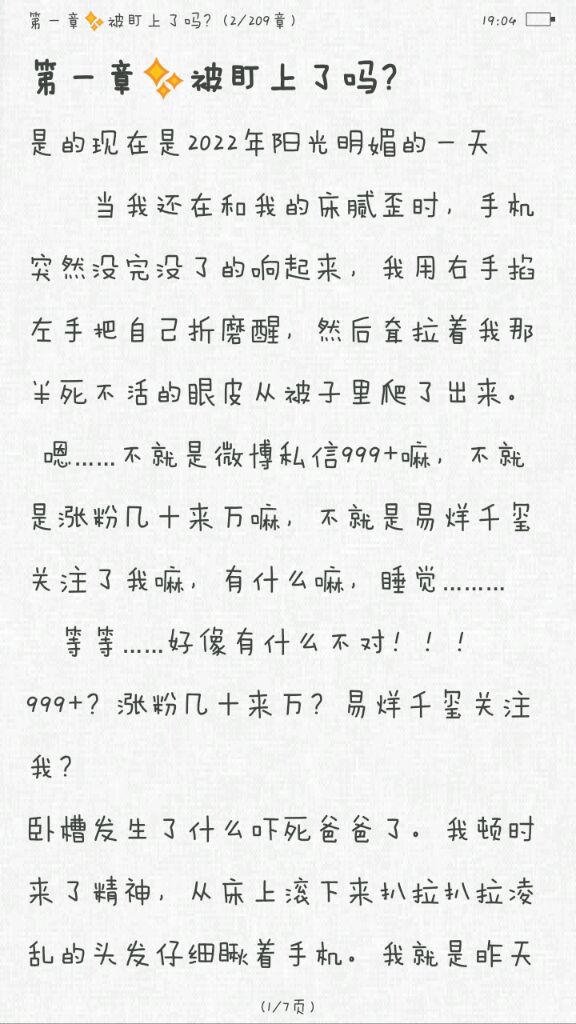 第一章✨被盯上了吗？(2/209章)
19:04
第一章✨被盯上了吗？
是的现在是2022年阳光明媚的一天
当我还在和我的床腻歪时，手机
突然没完没了的响起来，我用右手掐
左手把自己折磨醒，然后耷拉着我那
半死不活的眼皮从被子里爬了出来。
嗯……不就是微博私信999+嘛，不就
是涨粉几十来万嘛，不就是易烊千玺
关注了我嘛，有什么嘛，睡觉………
等等……好像有什么不对！！！
999+？涨粉几十来万？易烊千玺关注
我？
卧槽发生了什么吓死爸爸了。我顿时
来了精神，从床上滚下来扒拉扒拉凌
乱的头发仔细瞅着手机。我就是昨天
(1/7页)